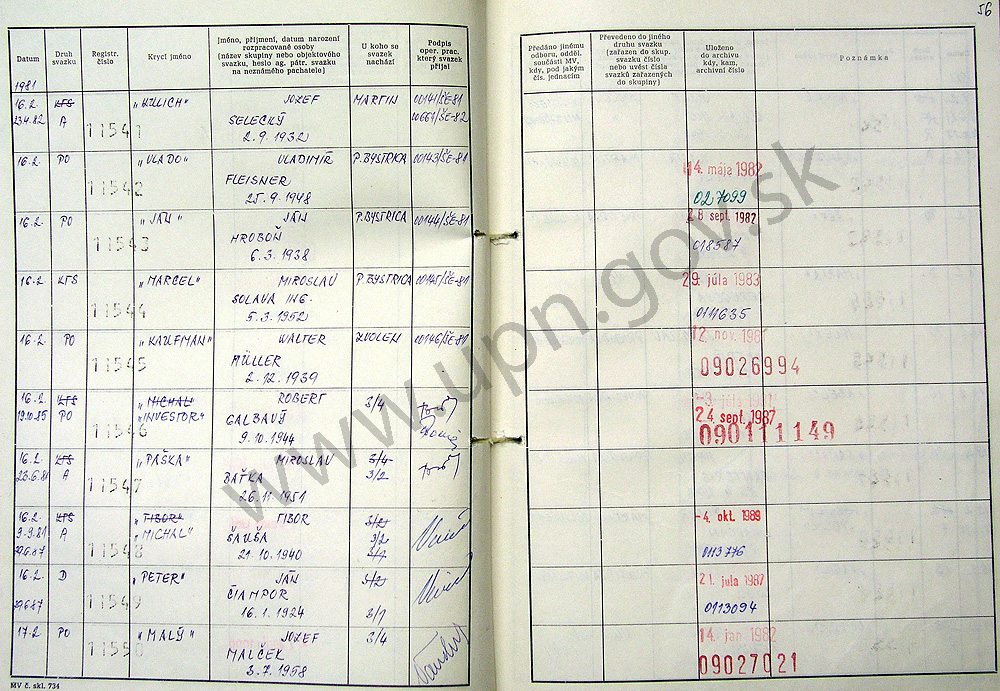 56
Datum
Druh svazku
Registr. číslo
Krycí jméno
Jméno, příjmení, datum narození
rozpracované osoby
(název skupiny nebo objektového
svazku, heslo ag. pátr. svazku
na neznámého pachatele)
U koho se
svazek
nachází
Podpis
oper. prac.
který svazek
přijal
Předáno jinému
odboru, odděl.
součásti MV,
kdy, pod jakým
čís. jednacím
Převedeno do jiného
druhu svazku
(zařazen do skup.
svazku číslo
nebo uvést čísla
svazků zařazených
do skupiny)
Uloženo
do archivu
kdy, kam,
archivní číslo
Poznámka
1981
16.2. KTS 11541 „KÝLICH" JOZEF MARTIN 00141/ŠE-81
23.4.82 A SELECKÝ 00667/ŠE-82
2.9.1932
16.2. PO 11542 „VLADO" VLADIMÍR P. BYSTRICA 00143/ŠE-81
FLEISNER
25.9.1948
14. mája 1982
027099
16.2. PO 11543 „JÁN" JÁN P. BYSTRICA 00144/ŠE-81
HROBOŇ
6.3.1938
28 sept. 1982
018587
16.2. KTS 11544 „MARCEL" MIROSLAV P. BYSTRICA 00145/ŠE-81
SOLAVA ING.
5.3.1952
29. júla 1983
011635
16.2. PO 11545 „KAUFMAN" WALTER ZVOLEN 00146/ŠE-81
MÜLLER
2.12.1939
12. nov.
09026994
16.2. KTS 11546 „MICHAL" ROBERT 3/4
19.10.85 PO „INVESTOR" GALBAVÝ
9.10.1944
24. sept. 1987
090111149
16.2. KTS 11547 „PAŠKA" MIROSLAV 3/4
A BAŤKA 3/2
26.11.1951
16.2. KTS 11548 „TIBOR" TIBOR 3/2
9.9.81 A „MICHAL" ŠAUŠA 3/2
21.10.1940
-4. okt. 1989
0113776
16.2. D 11549 „PETER" JÁN 3/2
ČIAMPOR
16.1.1924 3/1
21. jula 1987
0113094
17.2. PO 11550 „MALÝ" JOZEF 3/4
MALČEK
3.7.1958
14. jan 1982
09027021
MV č. skl. 734
www.upn.gov.sk